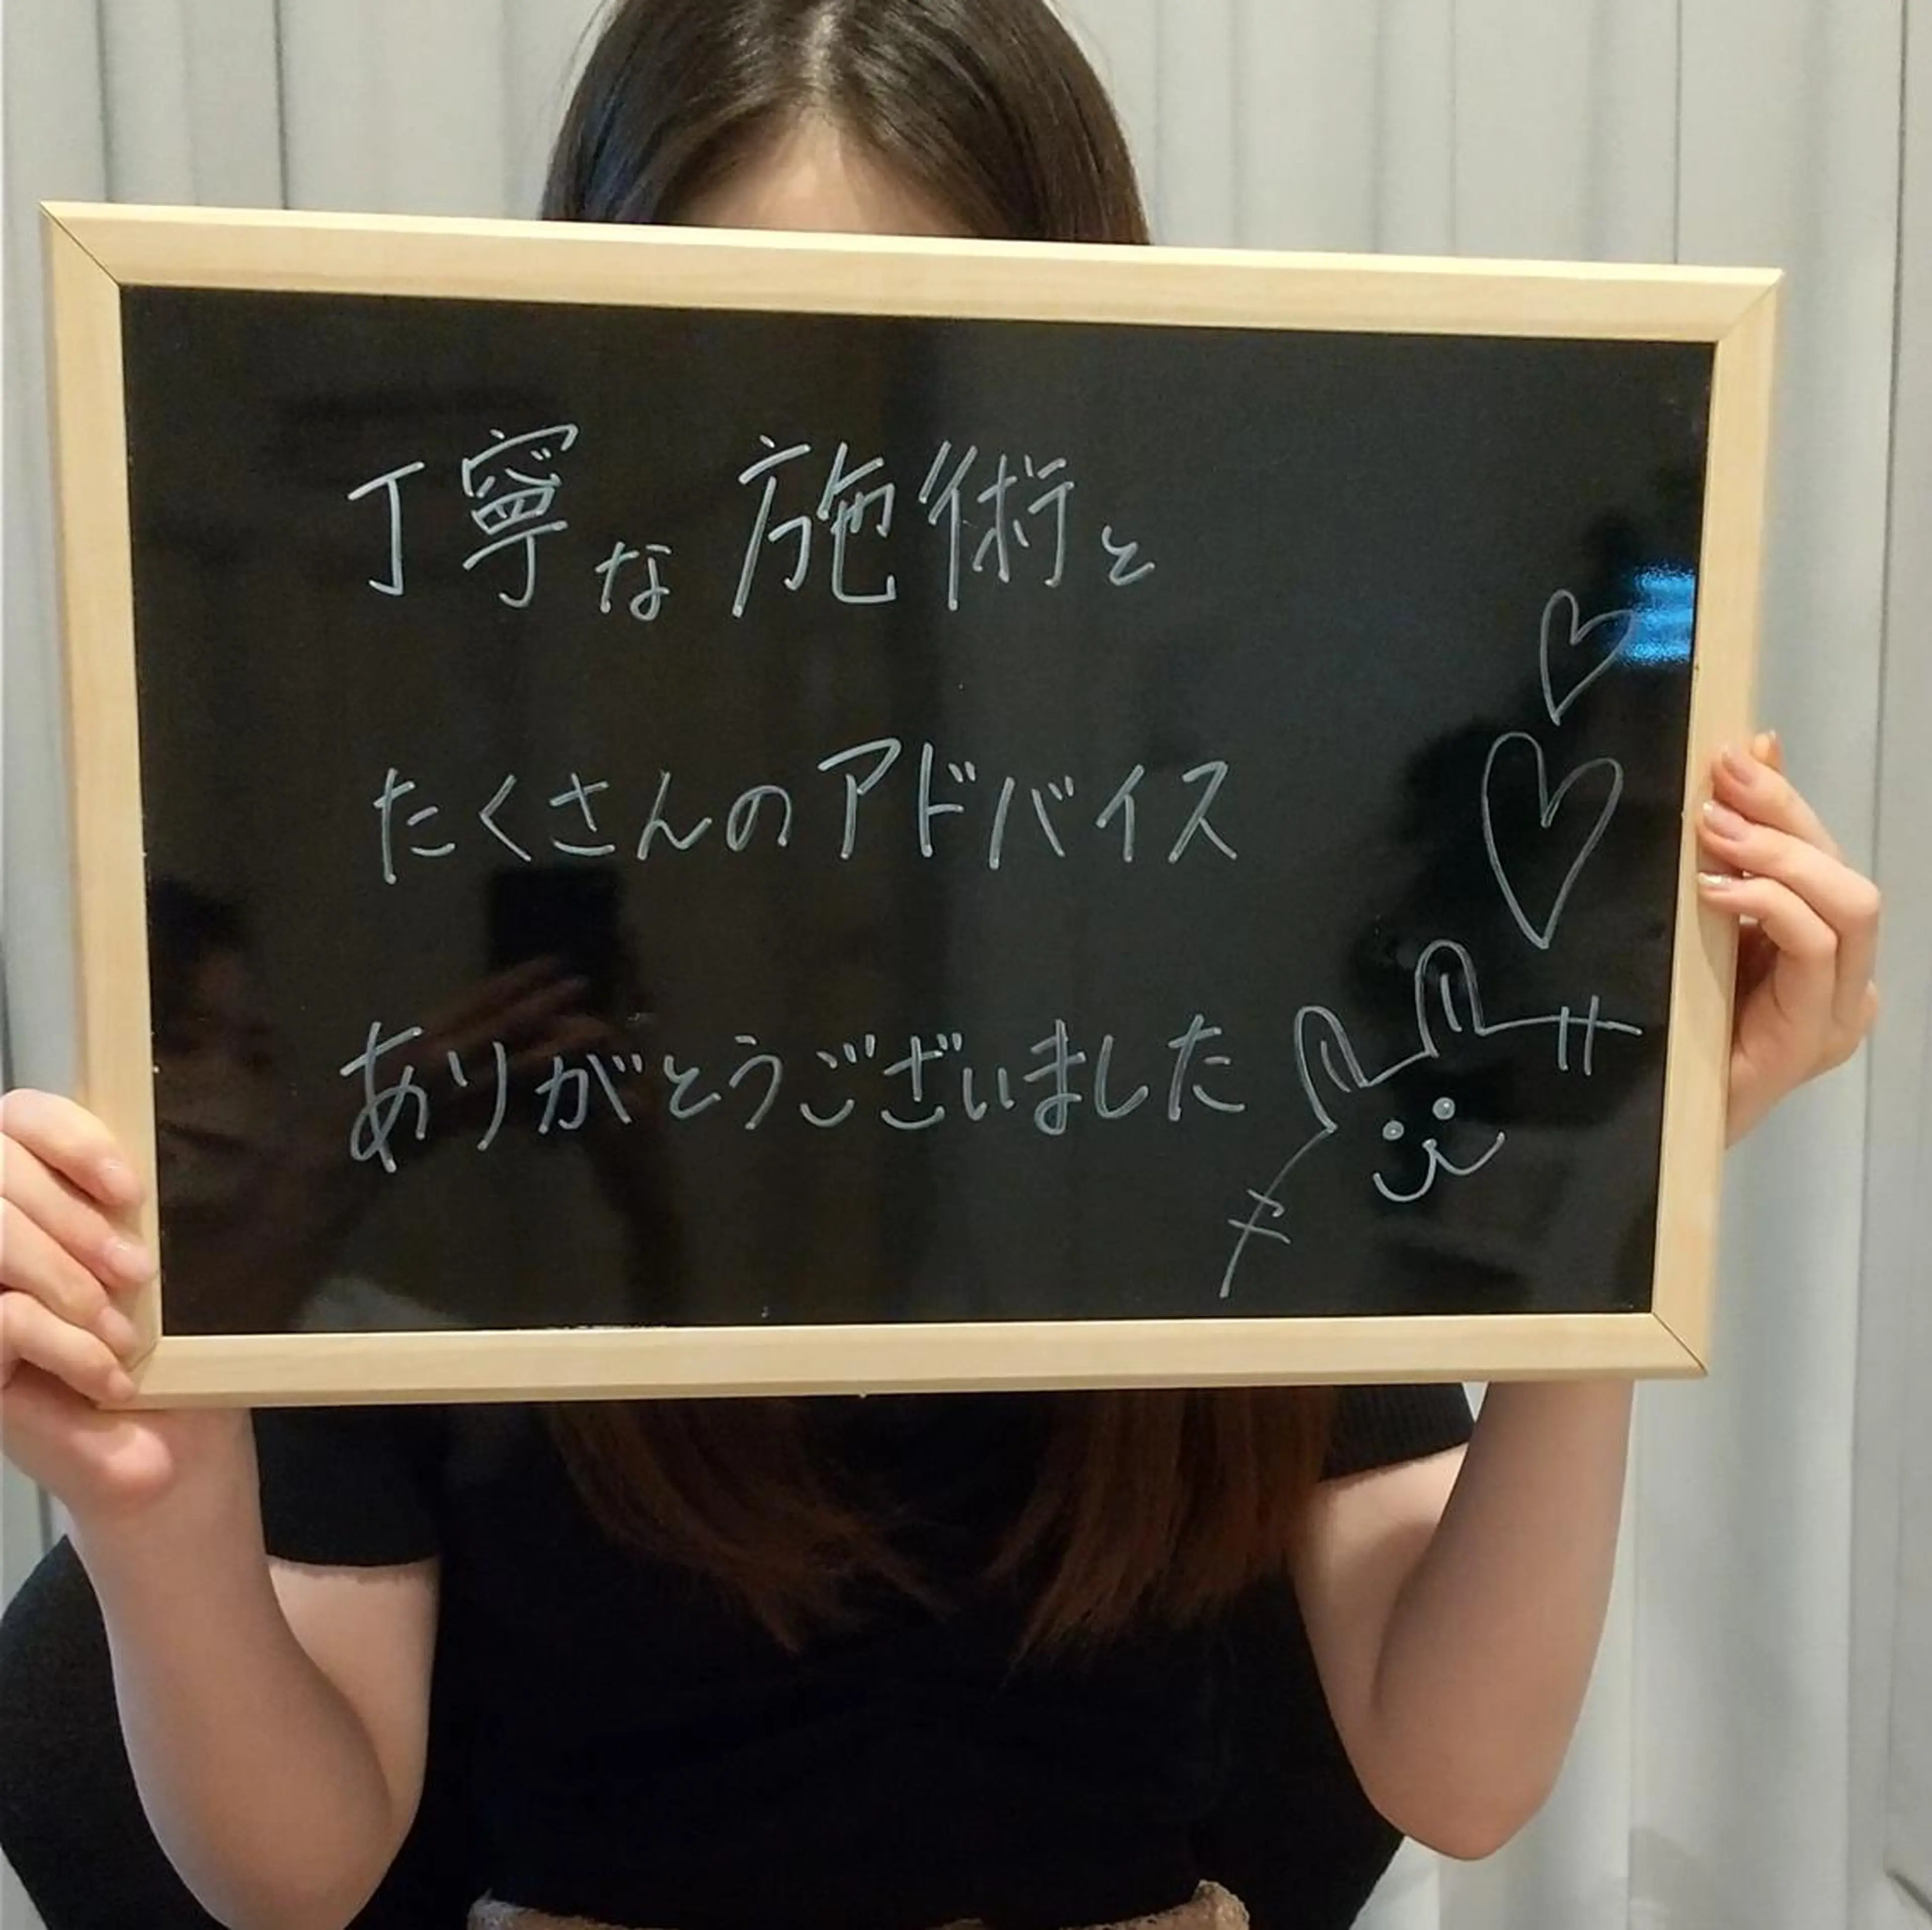 丁寧な施術と
たくさんのアドバイス
ありがとうございました